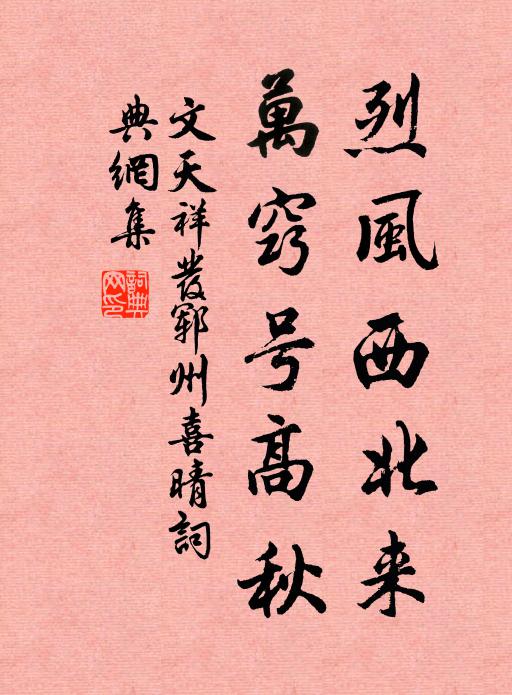 烈風西北来
萬竅号高秋
文天祥發鄆州喜晴詞
典網集
詞典网印